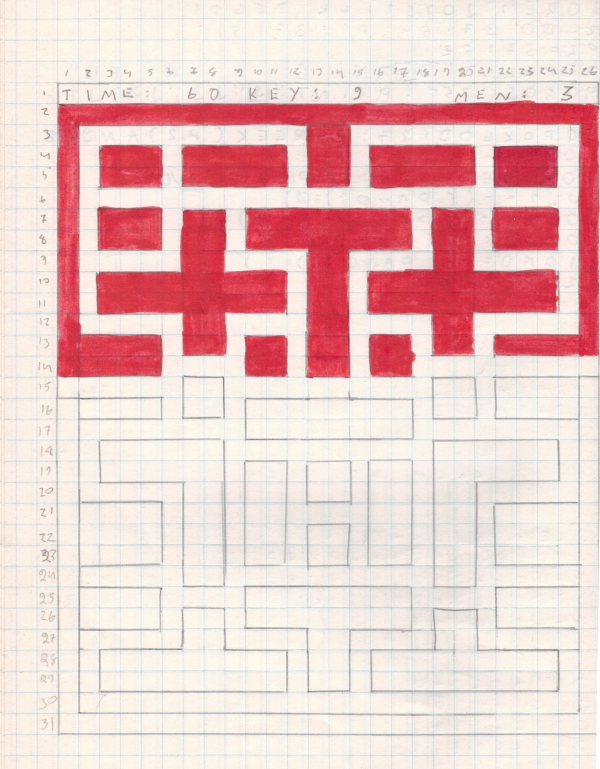 1 2 3 4 5 6 7 8 9 10 11 12 13 14 15 16 17 18 19 20 21 22 23 24 25 26
1 TIME: 60 KEY: 9 MEN: 3
2
3
4
5
6
7
8
9
10
11
12
13
14
15
16
17
18
19
20
21
22
23
24
25
26
27
28
29
30
31